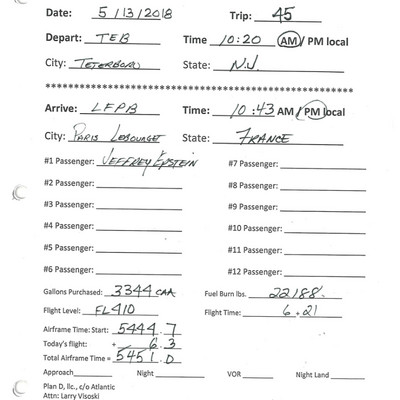 Date: 5/13/2018 Trip: 45
Depart: TEB Time 10:20 AM / PM local
City: TETERBORO State: N.J.
******************************************************
Arrive: LFPB Time: 10:43 AM / PM local
City: PARIS LEBOURGET State: FRANCE
#1 Passenger: JEFFREY EPSTEIN #7 Passenger:
#2 Passenger: #8 Passenger:
#3 Passenger: #9 Passenger:
#4 Passenger: #10 Passenger:
#5 Passenger: #11 Passenger:
#6 Passenger: #12 Passenger:
Gallons Purchased: 3344 CAA Fuel Burn lbs. 22188.
Flight Level: FL410 Flight Time: 6+21
Airframe Time: Start: 5444.7
Today's flight: + 6.3
Total Airframe Time = 5451.0
Approach Night VOR Night Land
Plan D, llc., c/o Atlantic
Attn: Larry Visoski